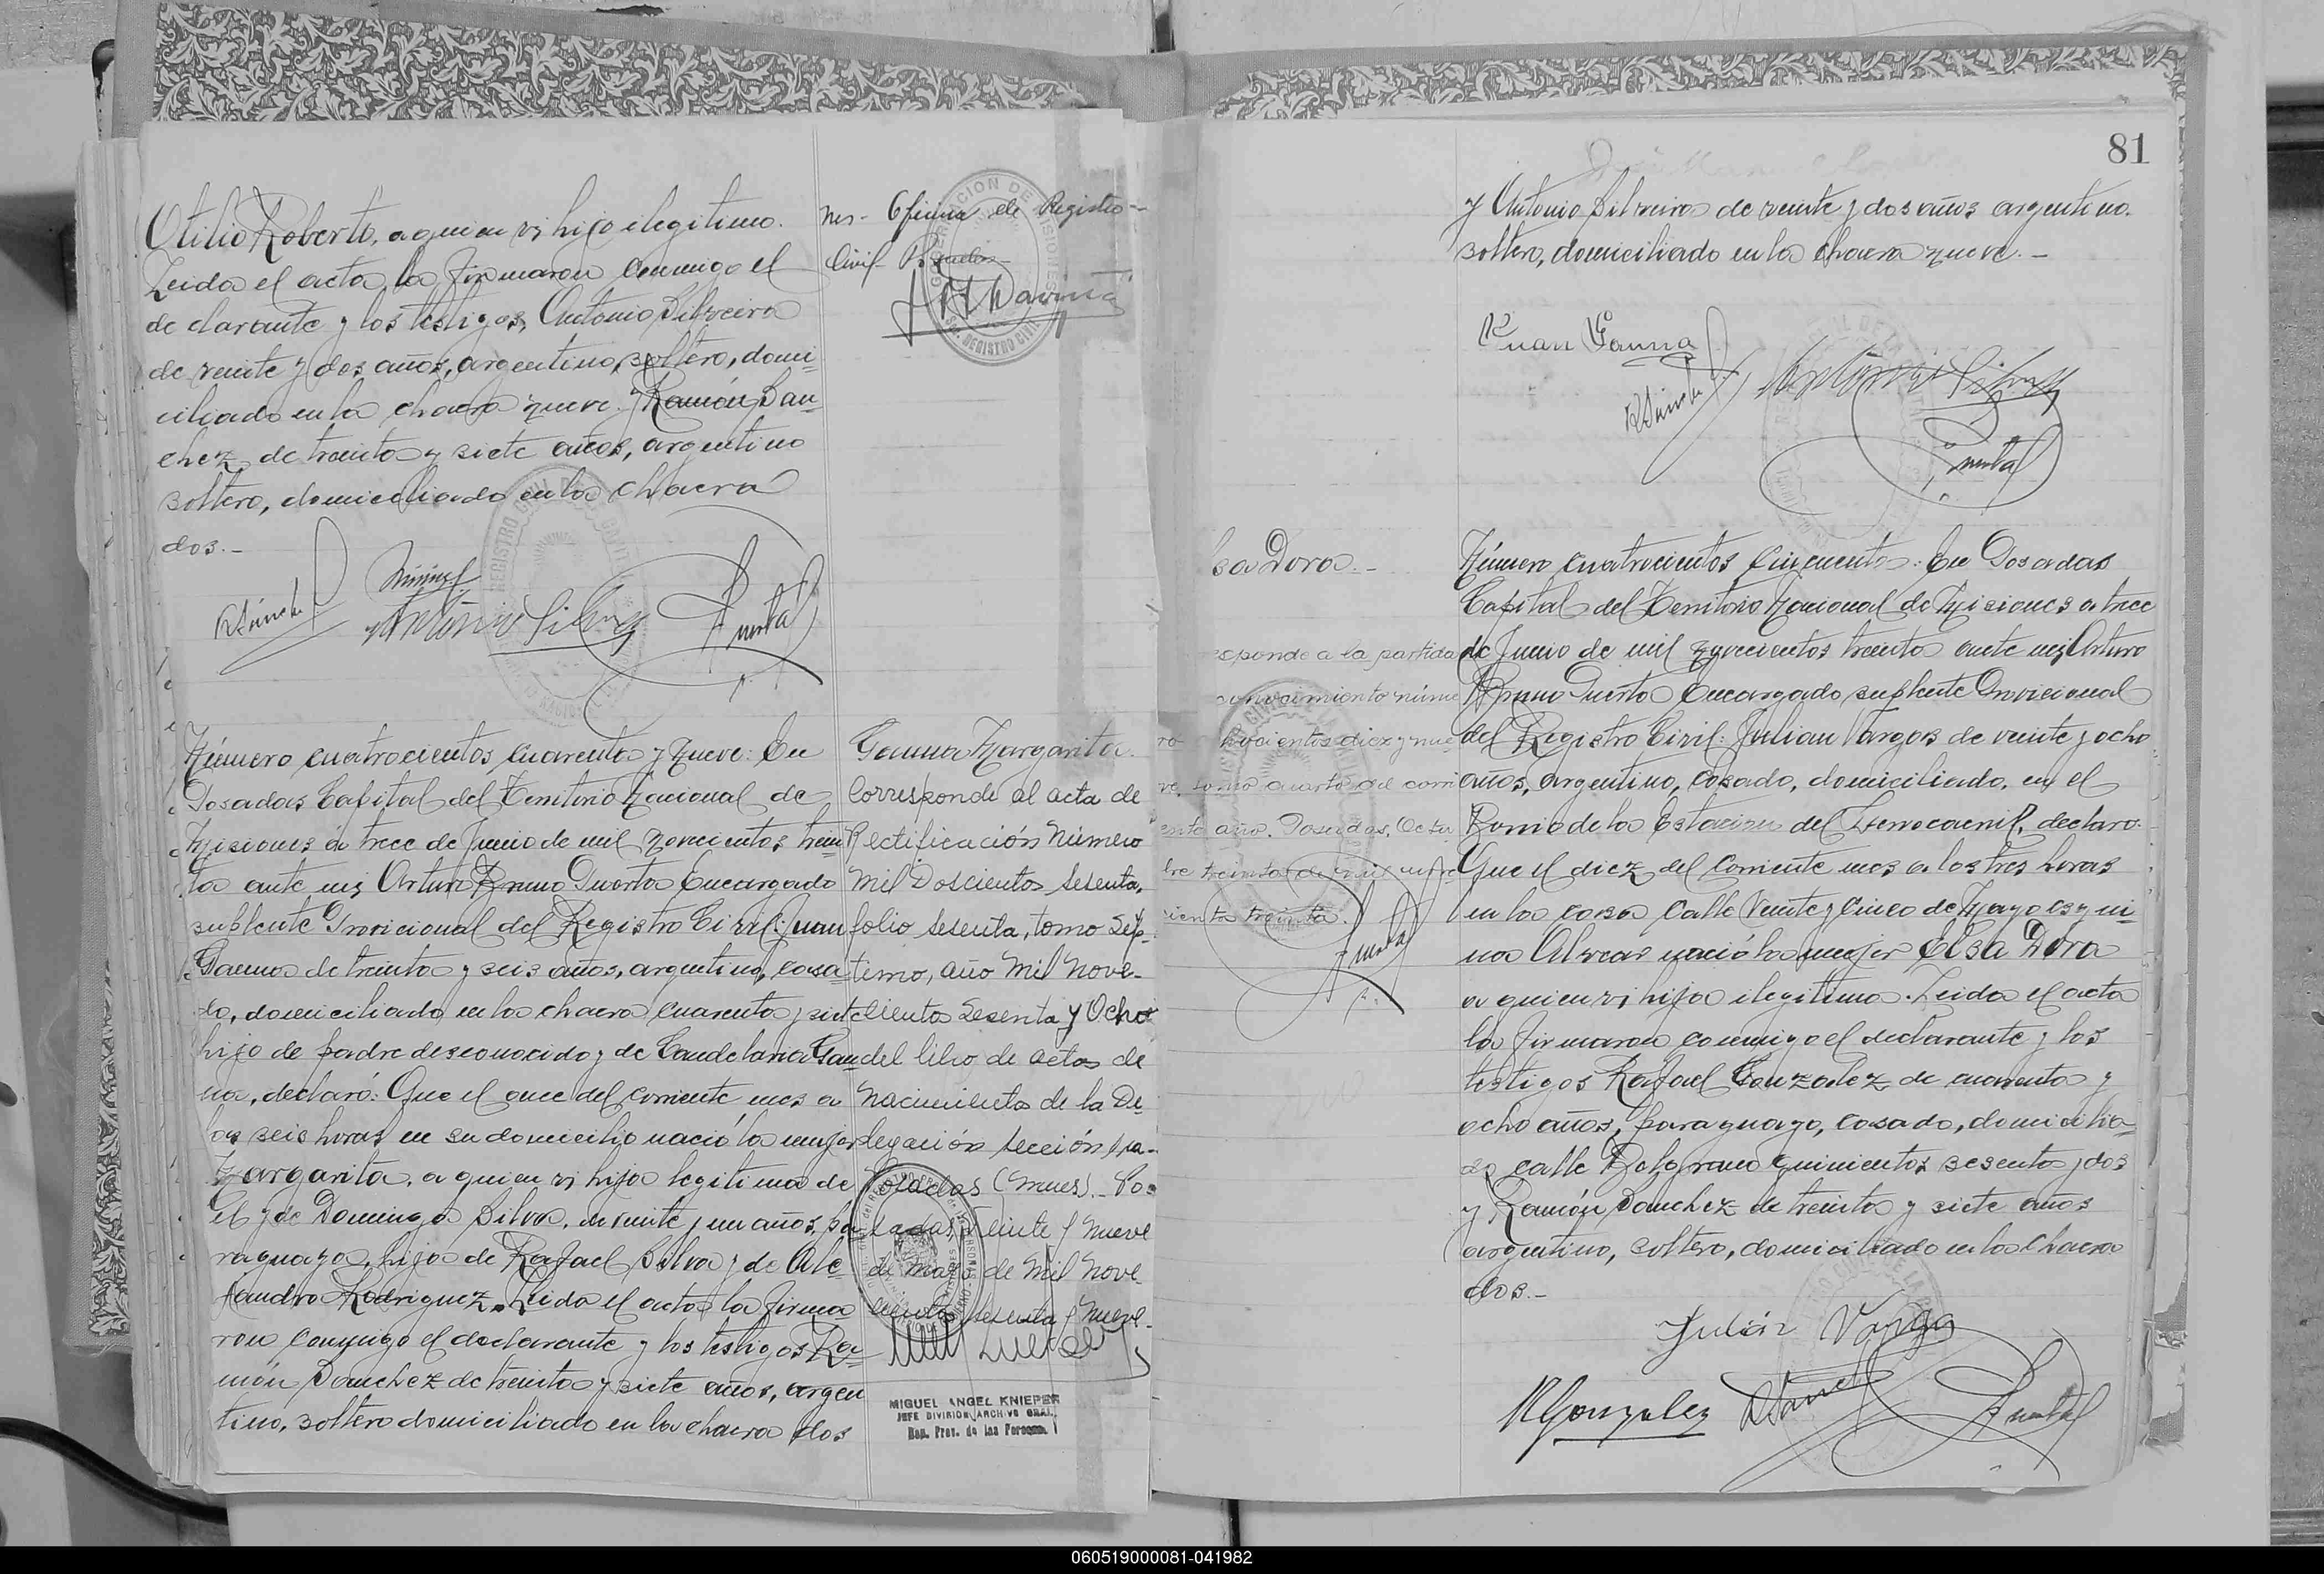 Otilio Roberto, a quien vi hijo ilegitimo.
Leida el acta, la firmaron conmigo el
declarante y los testigos, Antonio Silveira
de veinte y dos años, argentino, soltero, domi
ciliado en la chacra nueve. y Ramón San
chez de treinta y siete años, argentino
soltero, domiciliado en la chacra
dos.-
nes - Oficina de Registro -
Civil Posadas -
Número cuatrocientos cuarenta y nueve: En
Posadas Capital del Territorio Nacional de
Misiones a trece de Junio de mil novecientos trein
ta ante mi Arturo Bruno Puerta Encargado
suplente Provicional del Registro Civil: Juan
Gauna de treinta y seis años, argentino, casa
do, domiciliado en la chacra cuarenta y siete
hijo de padre desconocido y de Candelaria Gau
na, declaró: Que el once del corriente mes a
las seis horas en su domicilio nació la mujer
Margarita, a quien vi hija legitima de
el y de Dominga Silva, de veinte y un años, pa
raguaya, hija de Rafael Silva y de Ale
jandra Rodriguez. Leida el acta la firma
ron conmigo el declarante y los testigos Ra
món Sanchez de treinta y siete años, argen
tino, soltero domiciliado en la chacra dos
Gauna Margarita.
Corresponde al acta de
Rectificación Número
Mil Doscientos Sesenta,
folio sesenta, tomo Sép-
timo, año Mil Nove-
cientos Sesenta y Ocho
del libro de actas de
Nacimientos de la De
legación Sección 1ra.-
Posadas (Mnes). - Po=
sadas, Veinte y Nueve
de Mayo de Mil Nove
cientos sesenta y Nueve.
MIGUEL ANGEL KNIEPER
JEFE DIVISION ARCHIVO GRAL.
Reg. Prov. de las Personas
81
y Antonio Silveira de veinte y dos años argentino.
soltero, domiciliado en la chacra nueve.-
Juan Gauna
sa Dora.-
esponde a la partida
conocimiento núme
ro ochocientos diez y nue
ve, tomo cuarto del corri
ente año. Posadas, Octu
bre treinta de mil nove
cientos treinta.
Número cuatrocientos cincuenta: En Posadas
Capital del Territorio Nacional de Misiones a trece
de Junio de mil novecientos treinta ante mi Arturo
Bruno Puerta Encargado suplente Provicional
del Registro Civil: Julian Vargas de veinte y ocho
años, argentino, casado, domiciliado, en el
Barrio de la Estacion del Ferrocarril, declaro:
Que el diez del corriente mes a las tres horas
en la casa calle Veinte y Cinco de Mayo esqui
na Alvear nació la mujer Elsa Dora
a quien vi hija ilegitima. Leida el acta
la firmaron conmigo el declarante y los
testigos Rafael Gonzalez de cuarenta y
ocho años, paraguayo, casado, domicilia
do calle Belgrano quinientos sesenta y dos
y Ramón Sanchez de treinta y siete años
argentino, soltero, domiciliado en la chacra
dos.-
Julián Vargas
R Gonzalez
060519000081-041982